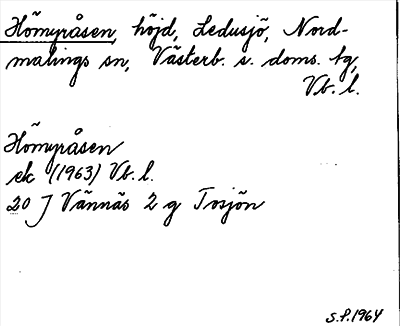 Hömyråsen, höjd, Ledusjö, Nord-
malings sn, Västerb. s. doms. tg,
Vb. l.
Hömyråsen
ek (1963) Vb. l.
20 J Vännäs 2 g Tosjön
S.P. 1964